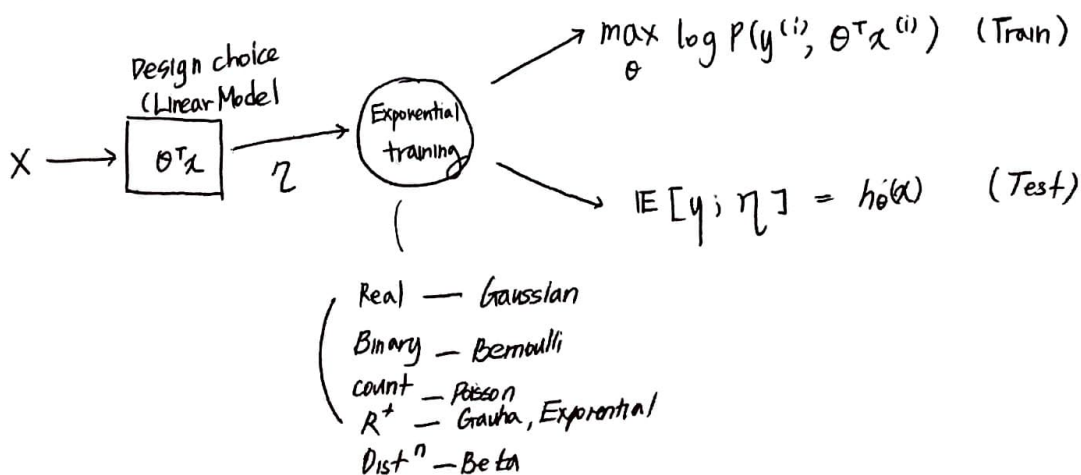 Design choice
(Linear Model
X
θᵀx
η
Exponential
training
max log P(y⁽ⁱ⁾; θᵀx⁽ⁱ⁾) (Train)
θ
𝔼[y; η] = hθ(x) (Test)
Real — Gaussian
Binary — Bernoulli
count — Poisson
R⁺ — Gauha, Exponential
Distⁿ — Beta